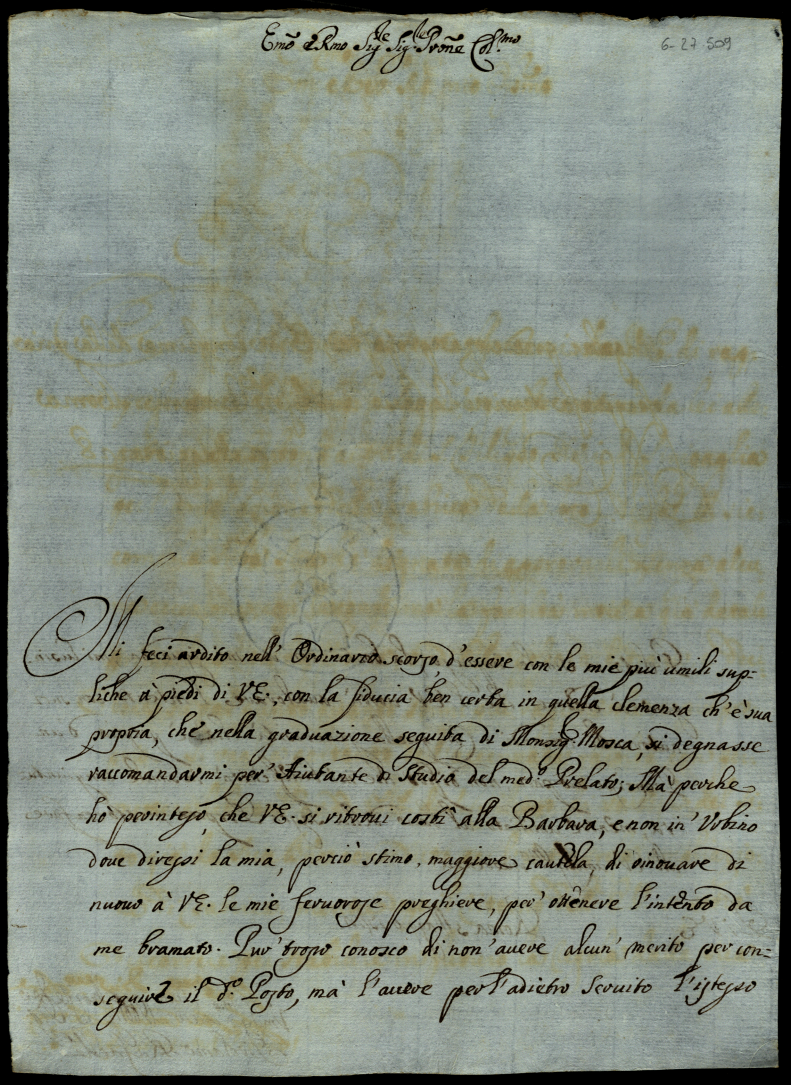 Emõ e Rmo Sig.re Sig.re Proñe Col.mo
6-27 509
Mi feci ardito nell'Ordinario scorso d'essere con le mie piu umili sup-
liche à piedi di V.E., con la fiducia ben certa in quella clemenza ch'è sua
propria, che nella graduazione seguita di Monsig.r Mosca, si degnasse
raccomandarmi per Aiutante di Studio del med.o Prelato; Mà perche
ho perinteso, che V.E. si ritroui costì alla Barbara, e non in Vrbino
doue diressi la mia, perciò stimo, maggiore cautela, di rinouare di
nuouo à V.E. le mie feruorose preghiere, per ottenere l'intento da
me bramato. Pur tropo conosco di non auere alcun merito per con-
seguire il d.o Posto, mà l'auere per l'adietro Seruito l'istesso